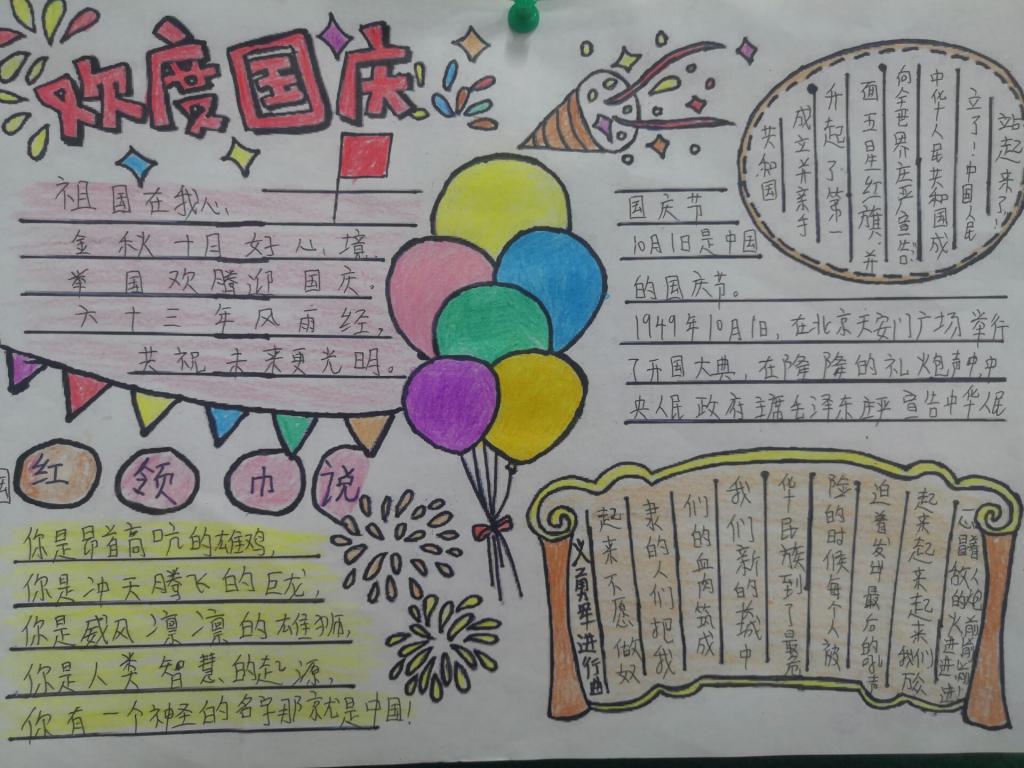 欢度国庆
祖国在我心
金秋十月好心境,
举国欢腾迎国庆。
六十三年风雨经,
共祝未来更光明。
国庆节
10月1日是中国
的国庆节。
1949年10月1日,在北京天安门广场举行
了开国大典,在隆隆的礼炮声中,中
央人民政府主席毛泽东庄严宣告中华人民
共和国
成立并亲手
升起了第一
面五星红旗并
向全世界庄严宣告
中华人民共和国成
立了!中国人民
站起来了
红领巾说
你是昂首高吭的雄鸡,
你是冲天腾飞的巨龙,
你是威风凛凛的雄狮,
你是人类智慧的起源,
你有一个神圣的名字那就是中国!
义勇军进行曲
起来不愿做奴
隶的人们把我
们的血肉筑成
我们新的长城中
华民族到了最危
险的时候每个人被
迫着发出最后的吼声
起来起来起来我们